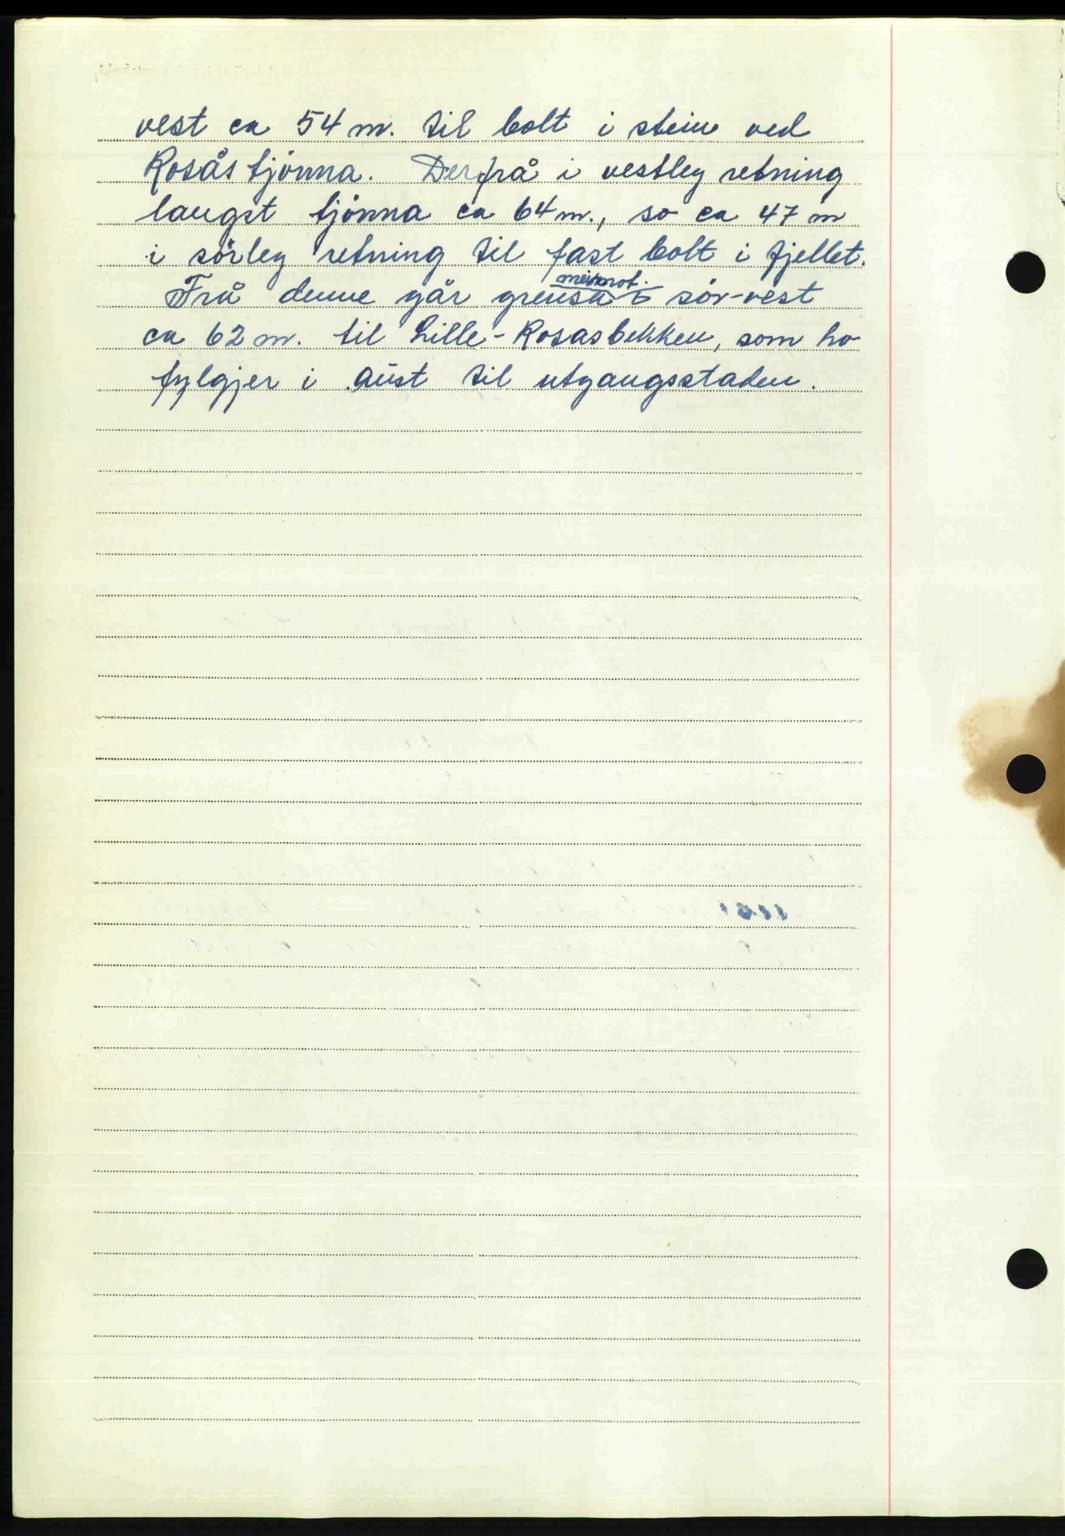 vest ca 54 m. til bolt i stein ved
Rosåstjönna. Derfrå i vestleg retning
langst tjönna ca 64 m., so ca 47 m
i sörleg retning til fast bolt i fjellet.
Frå denne går grensa i sör-vest
ca 62 m. til Lille-Rosasbekken, som ho
fylgjer i aust til utgangsstaden.